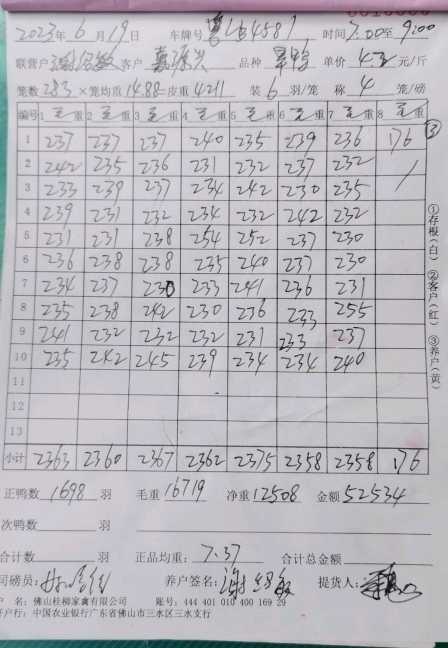 2023年6月19日 车牌号 4587 时间7:00至9:00
联营户 客户 品种 单价4.2元/斤
笼数283×笼均重14.88皮重4211 装6羽/笼 称4笼/磅
编号 1毛重 2毛重 3毛重 4毛重 5毛重 6毛重 7毛重 8毛重
1 237 237 237 240 235 239 236 176
2 242 235 236 231 232 237 232
3 233 239 237 234 242 230 235
4 239 231 232 234 232 242 232
5 231 231 238 254 252 237 230
6 236 238 238 235 240 237 230
7 234 237 230 233 241 236 231
8 235 238 242 230 236 233 255
9 241 232 232 232 231 233 237
10 235 242 245 239 234 234 240
11
12
13
小计 2363 2360 2367 2362 2375 2358 2358 176
正鸭数1698羽 毛重16719 净重12508 金额52534
次鸭数 羽
合计数 羽 正品均重：7.37 合计总金额
司磅员： 养户签名： 提货人：
户 名：佛山桂柳家禽有限公司 账号：444 401 010 400 169 29
开户行：中国农业银行广东省佛山市三水区三水支行
③
①存根(白) ②客户(红) ③养户(黄)